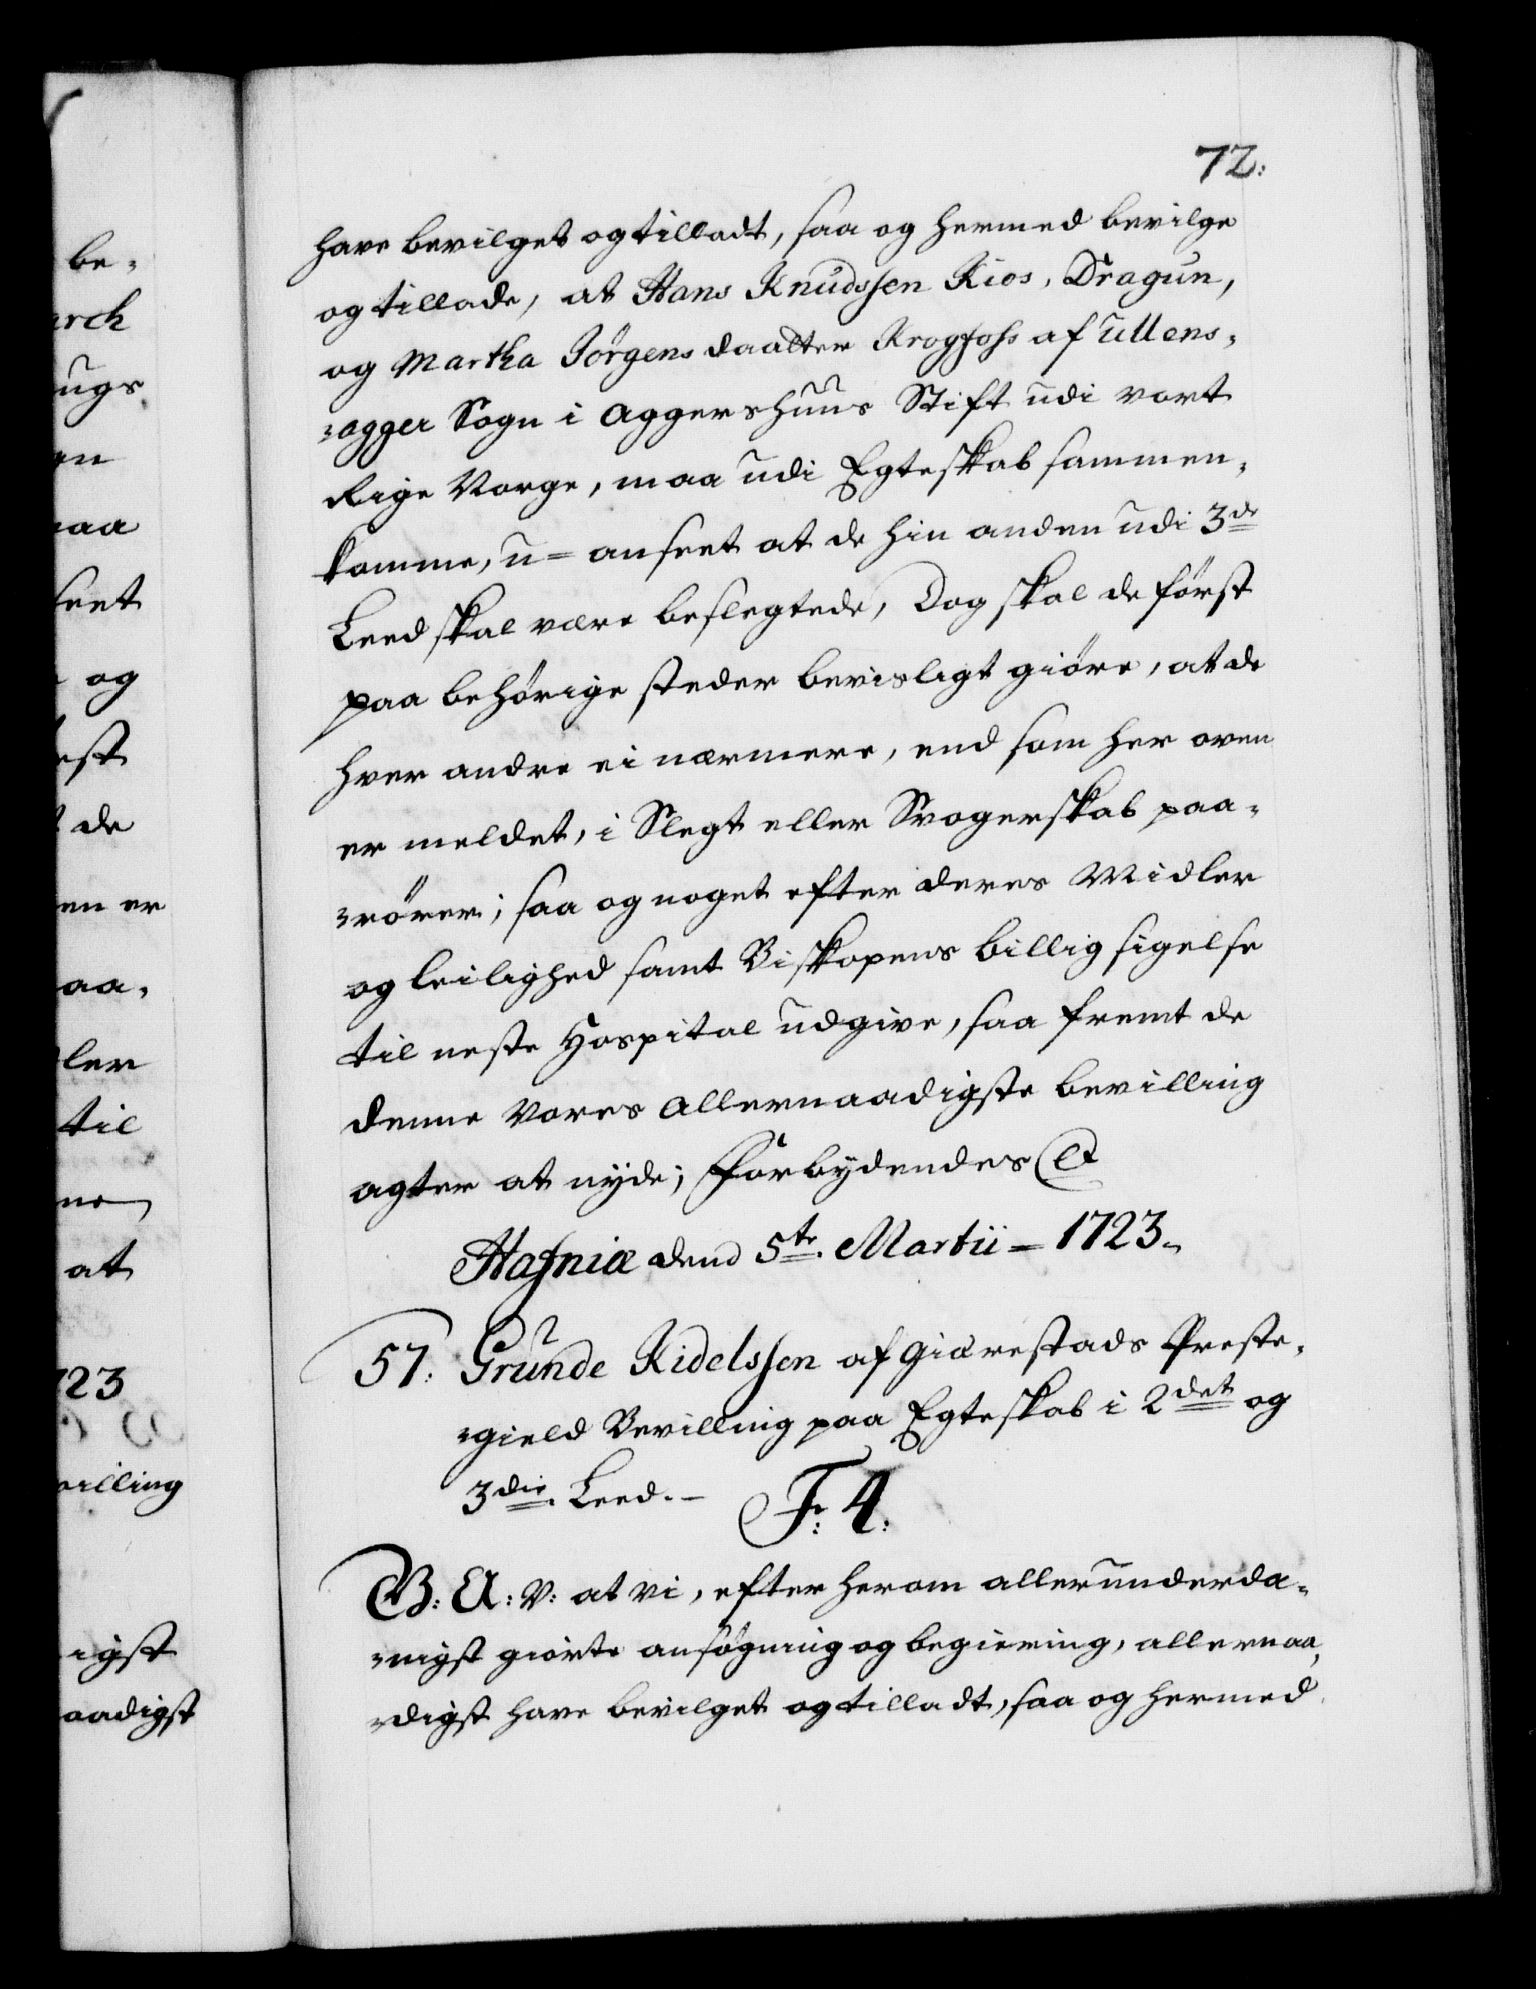 72.
have bevilget og tilladt, saa og hermed bevilge
og tillade, at Hans Knudssen Kios, Dragun,
og Martha Jörgens daatter Krogfoss af Ullens-
-agger Sogn i Aggershuus Stift udi vort
Rige Norge, maa udi Egteskab sammen-
komme, u=anseet at de hin anden udi 3de
Leed skal være beslegtede, Dog skal de först
paa behörige steder bevisligt giöre, at de
hver andre ei nærmere, end som her oven
er meldet, i Slegt eller Svogerskab paa-
-rörer; saa og noget efter deres Midler
og leilighed samt Biskopens billig sigelse
til neste Hospital udgive, saa fremt de
denne Vores allernaadigste bevilling
agter at nyde; Forbydendes &
Hafniæ dend 5te Martii = 1723.
57. Grunde Kidelssen af Giærestads Preste-
-gield Bevilling paa Egteskab i 2det og
3die Leed.-
F: 4:
G: A: V: at vi, efter herom allerunderda-
-nigst giorte ansögning og begiering, allernaa-
-digst have bevilget og tilladt, saa og hermed
be-
arch
ugs
en
maa
seet
og
est
de
en er
aa-
ler
til
ne
at
723
villing
igst
aadigst